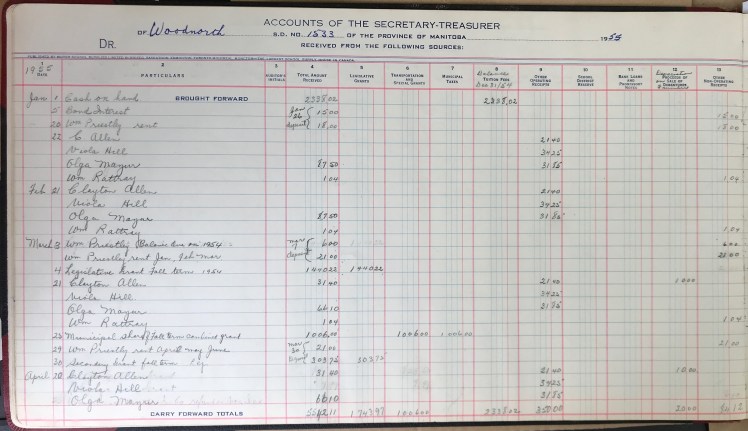 ACCOUNTS OF THE SECRETARY-TREASURER
DR. OF Woodnorth S.D. NO. 1533 OF THE PROVINCE OF MANITOBA 1955
RECEIVED FROM THE FOLLOWING SOURCES:
1 2 3 4 5 6 7 8 9 10 11 12 13
1955 DATE PARTICULARS AUDITOR'S INITIALS TOTAL AMOUNT RECEIVED LEGISLATIVE GRANTS TRANSPORTATION AND SPECIAL GRANTS MUNICIPAL TAXES Balance Dec 31/54 OTHER OPERATING RECEIPTS SCHOOL DISTRICT RESERVE BANK LOANS AND PROMISSORY NOTES PROCEEDS OF SALE OF DEBENTURES OTHER NON-OPERATING RECEIPTS
Jan 1 Cash on hand BROUGHT FORWARD 2338.02 2338.02
5 Bond Interest Jan 26 15.00 15.00
20 Wm Priestly rent deposit 18.00 18.00
22 C. Allen 21 40
Viola Hill 34 25
Olga Mazur 87.50 31 85
Wm Rattray 1.04 1 04
Feb 21 Clayton Allen 21 40
Viola Hill 34 25
Olga Mazur 87.50 31 85
Wm Rattray 1.04 1 04
March 3 Wm Priestly (Balance due on 1954 6.00 6 00
Wm Priestly rent Jan. Feb. Mar deposit 21.00 21 00
4 Legislative Grant Fall term 1954 1440 22 1440 22
21 Clayton Allen 31 40 21 40 10 00
Viola Hill 34 25
Olga Mazur 66 10 31 85
Wm Rattray 1.04 1 04
23 Municipal share Fall term combined grant 1006.00 1006.00
29 Wm Priestly rent April May June 21.00 21 00
30 Secondary Grant fall term 303 75 303 75
April 20 Clayton Allen 31 40 21 40 10 00
Viola Hill 34 25
Olga Mazur 66 10 31 85
CARRY FORWARD TOTALS 1743 97 1006 00 2338 02 20 00